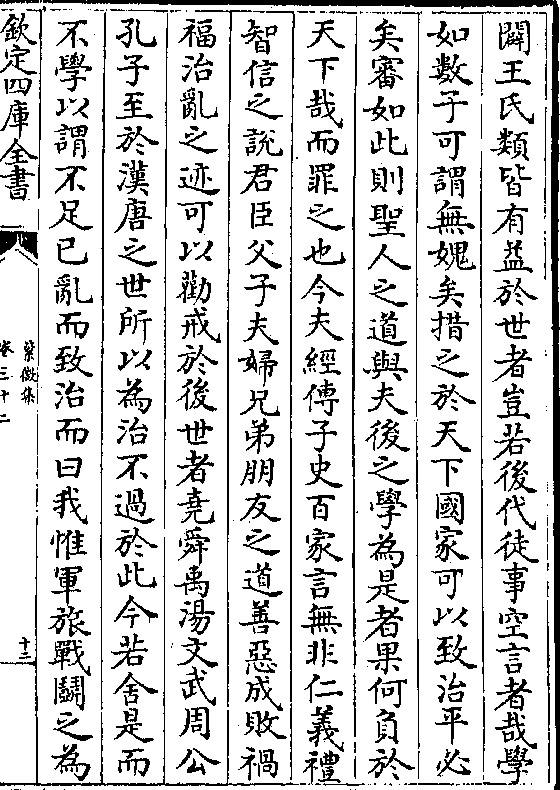 闢王氏類皆有益於世者豈若後代徒事空言者哉學
如數子可謂無媿矣措之於天下國家可以致治平必
矣審如此則聖人之道與夫後之學為是者果何負於
天下哉而罪之也今夫經傳子史百家言無非仁義禮
智信之說君臣父子夫婦兄弟朋友之道善惡成敗禍
福治亂之迹可以勸戒於後世者堯舜禹湯文武周公
孔子至於漢唐之世所以為治不過於此今若舍是而
不學以謂不足已亂而致治而曰我惟軍旅戰鬭之為
欽定四庫全書
紫微集
卷三十二
十三